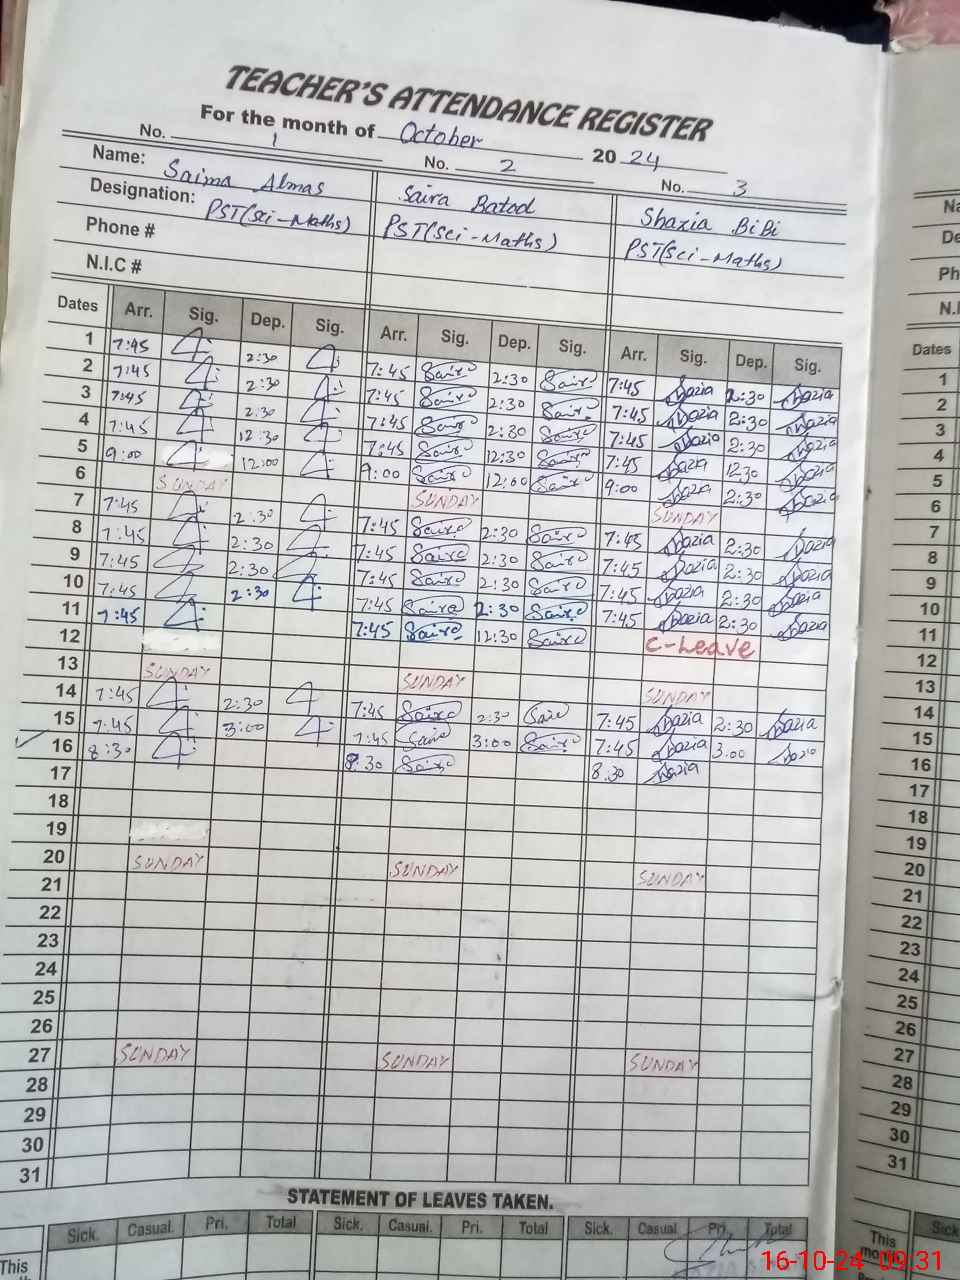 TEACHER'S ATTENDANCE REGISTER
For the month of October 2024
No. 1 No. 2 No. 3
Name: Saima Almas Saira Batool Shazia BiBi
Designation: PST(Sci-Maths) PST(Sci-Maths) PST(Sci-Maths)
Phone #
N.I.C #
Dates Arr. Sig. Dep. Sig. Arr. Sig. Dep. Sig. Arr. Sig. Dep. Sig.
1 7:45 2:30 7:45 Saira 2:30 Saira 7:45 Shazia 2:30 Shazia
2 7:45 2:30 7:45 Saira 2:30 Saira 7:45 Shazia 2:30 Shazia
3 7:45 2:30 7:45 Saira 2:30 Saira 7:45 Shazia 2:30 Shazia
4 7:45 12:30 7:45 Saira 12:30 Saira 7:45 Shazia 1230 Shazia
5 9:00 12:00 9:00 Saira 12:00 Saira 9:00 Shazia 2:30 Shazia
6 SUNDAY SUNDAY SUNDAY
7 7:45 2:30 7:45 Saira 2:30 Saira 7:45 Shazia 2:30 Shazia
8 7:45 2:30 7:45 Saira 2:30 Saira 7:45 Shazia 2:30 Shazia
9 7:45 2:30 7:45 Saira 2:30 Saira 7:45 Shazia 2:30 Shazia
10 7:45 2:30 7:45 Saira 2:30 Saira 7:45 Shazia 2:30 Shazia
11 7:45 7:45 Saira 12:30 Saira C-Leave
12
13 SUNDAY SUNDAY SUNDAY
14 7:45 2:30 7:45 Saira 2:30 Saira 7:45 Shazia 2:30 Shazia
15 7:45 3:00 7:45 Saira 3:00 Saira 7:45 Shazia 3:00 Shazia
16 8:30 8:30 Saira 8.30 Shazia
17
18
19
20 SUNDAY SUNDAY SUNDAY
21
22
23
24
25
26
27 SUNDAY SUNDAY SUNDAY
28
29
30
31
STATEMENT OF LEAVES TAKEN.
Sick. Casual. Pri. Total Sick. Casual. Pri. Total Sick. Casual Pri. Total
This
Na
De
Ph
N.I
Dates
1
2
3
4
5
6
7
8
9
10
11
12
13
14
15
16
17
18
19
20
21
22
23
24
25
26
27
28
29
30
31
Sick
This
month
16-10-24 09:31